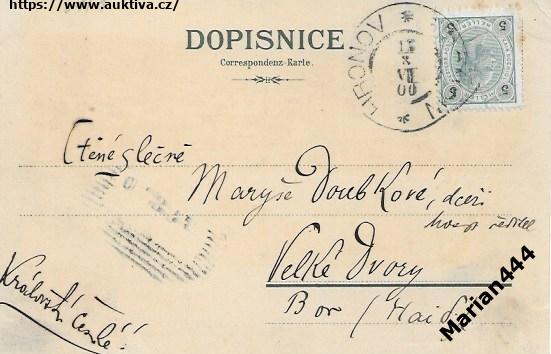 https://www.auktiva.cz/
DOPISNICE.
Correspondenz-Karte.
HRONOV
13
VII
00
5 5
5 5
Ctěné slečně
Maryše Doubkové, dceři
Velké Dvory
Bor / Haid
Království České!
Marian444